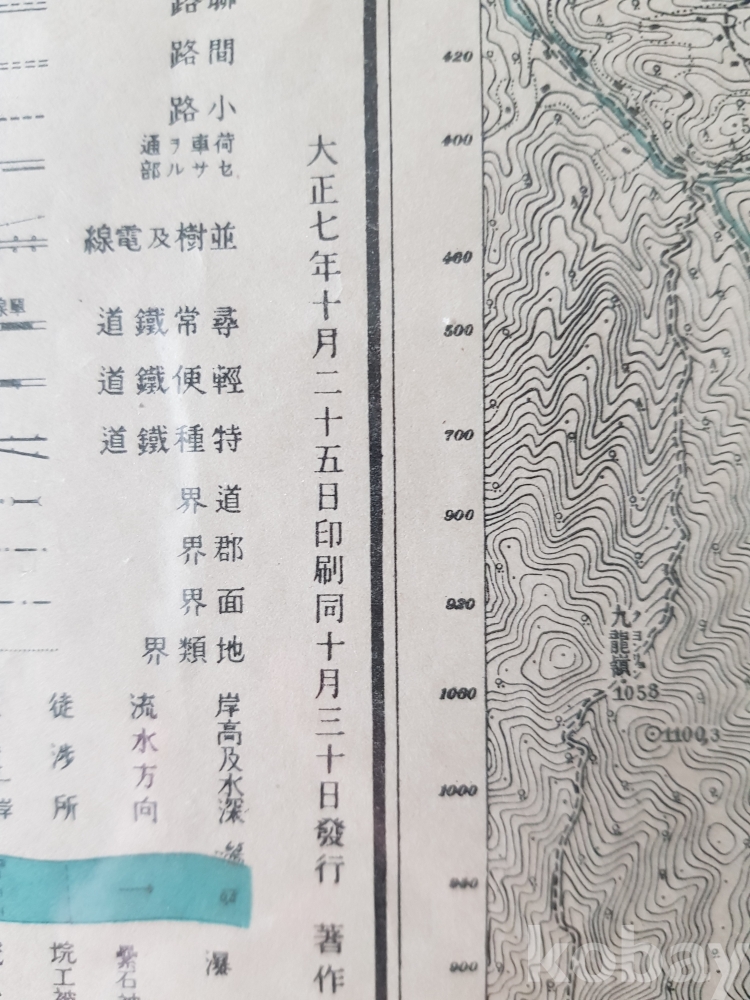 聯路
間路
小路
荷車ヲ通
セサル部
並樹及電線
尋常鐵道
單線
輕便鐵道
特種鐵道
道界
郡界
面界
地類界
岸高及水深
流水方向
徒渉所
岸
瀑
大正七年十月二十五日印刷同十月三十日發行 著作
420
400
460
500
700
900
920
1060
1000
940
900
九龍嶺
1058
1100.3
kobay